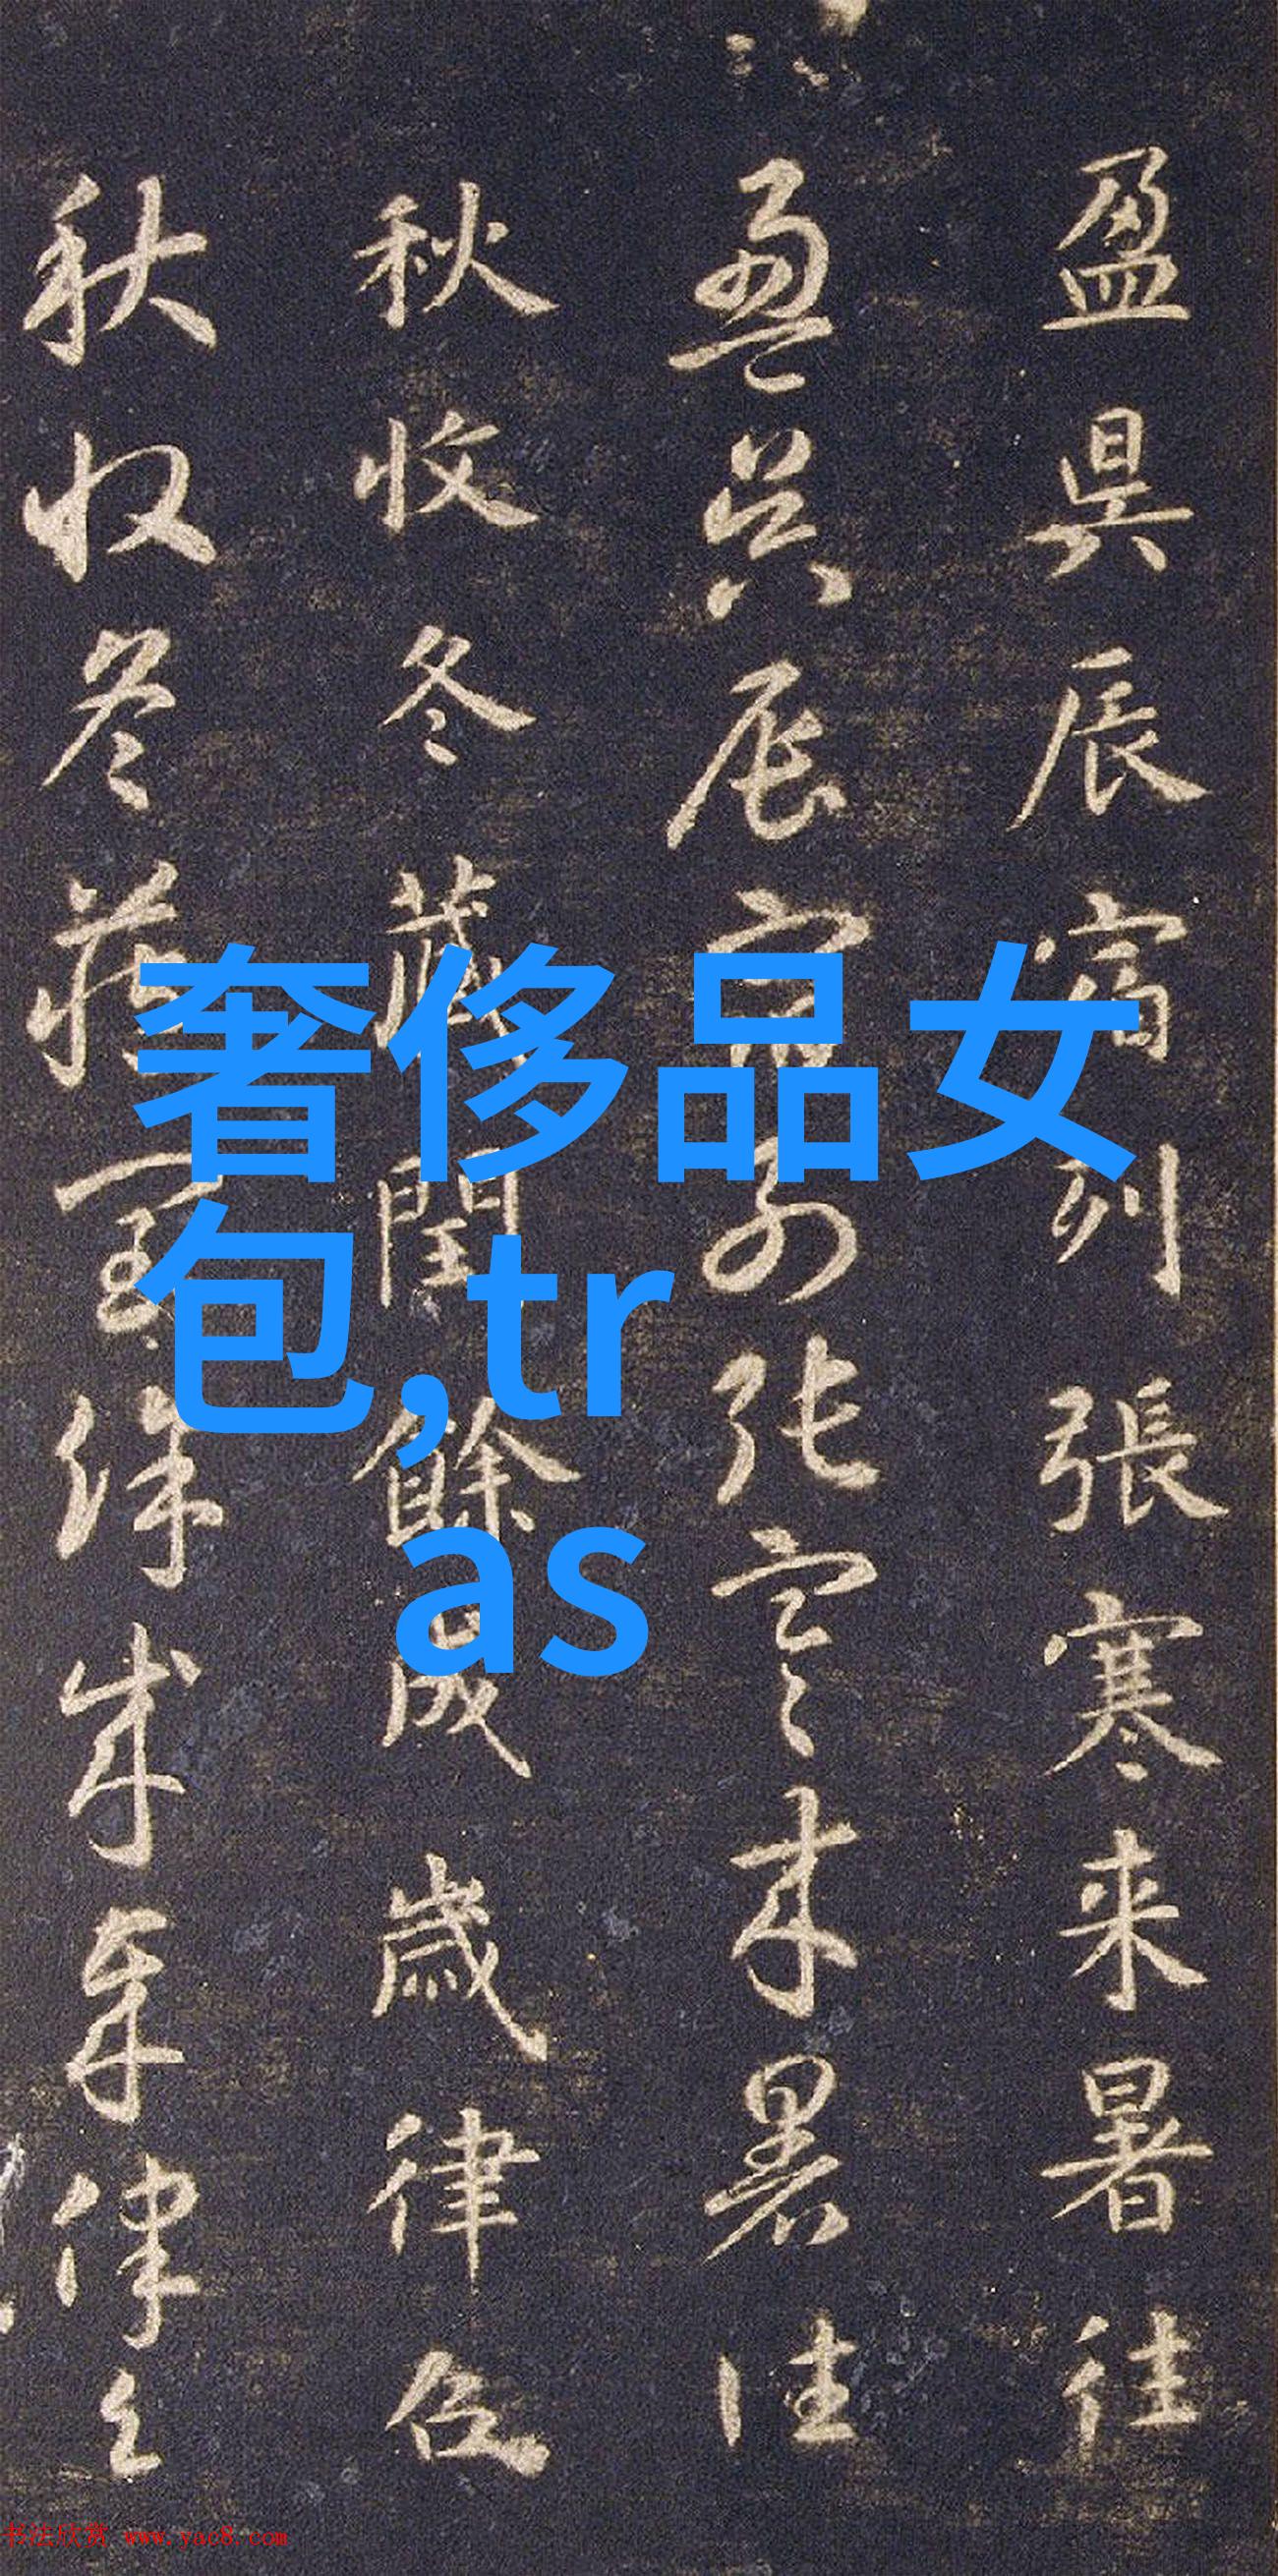 奢侈品女
包,tr
as
盈昃辰宿列張寒来暑往
盈昃辰宿列张寒来暑往
秋收冬藏閏餘成歲律呂
秋收冬藏閏餘成歲律呂
书法欣赏 www.yac8.com